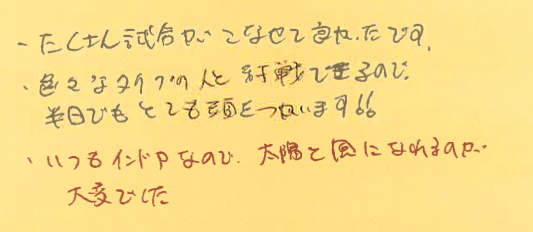 ・たくさん試合がこなせて良かったです。
・色々なタイプの人と対戦できるので、
半日でもとても頭をつかいます!!
・いつもインドアなので、太陽と風になれるのが
大変でした